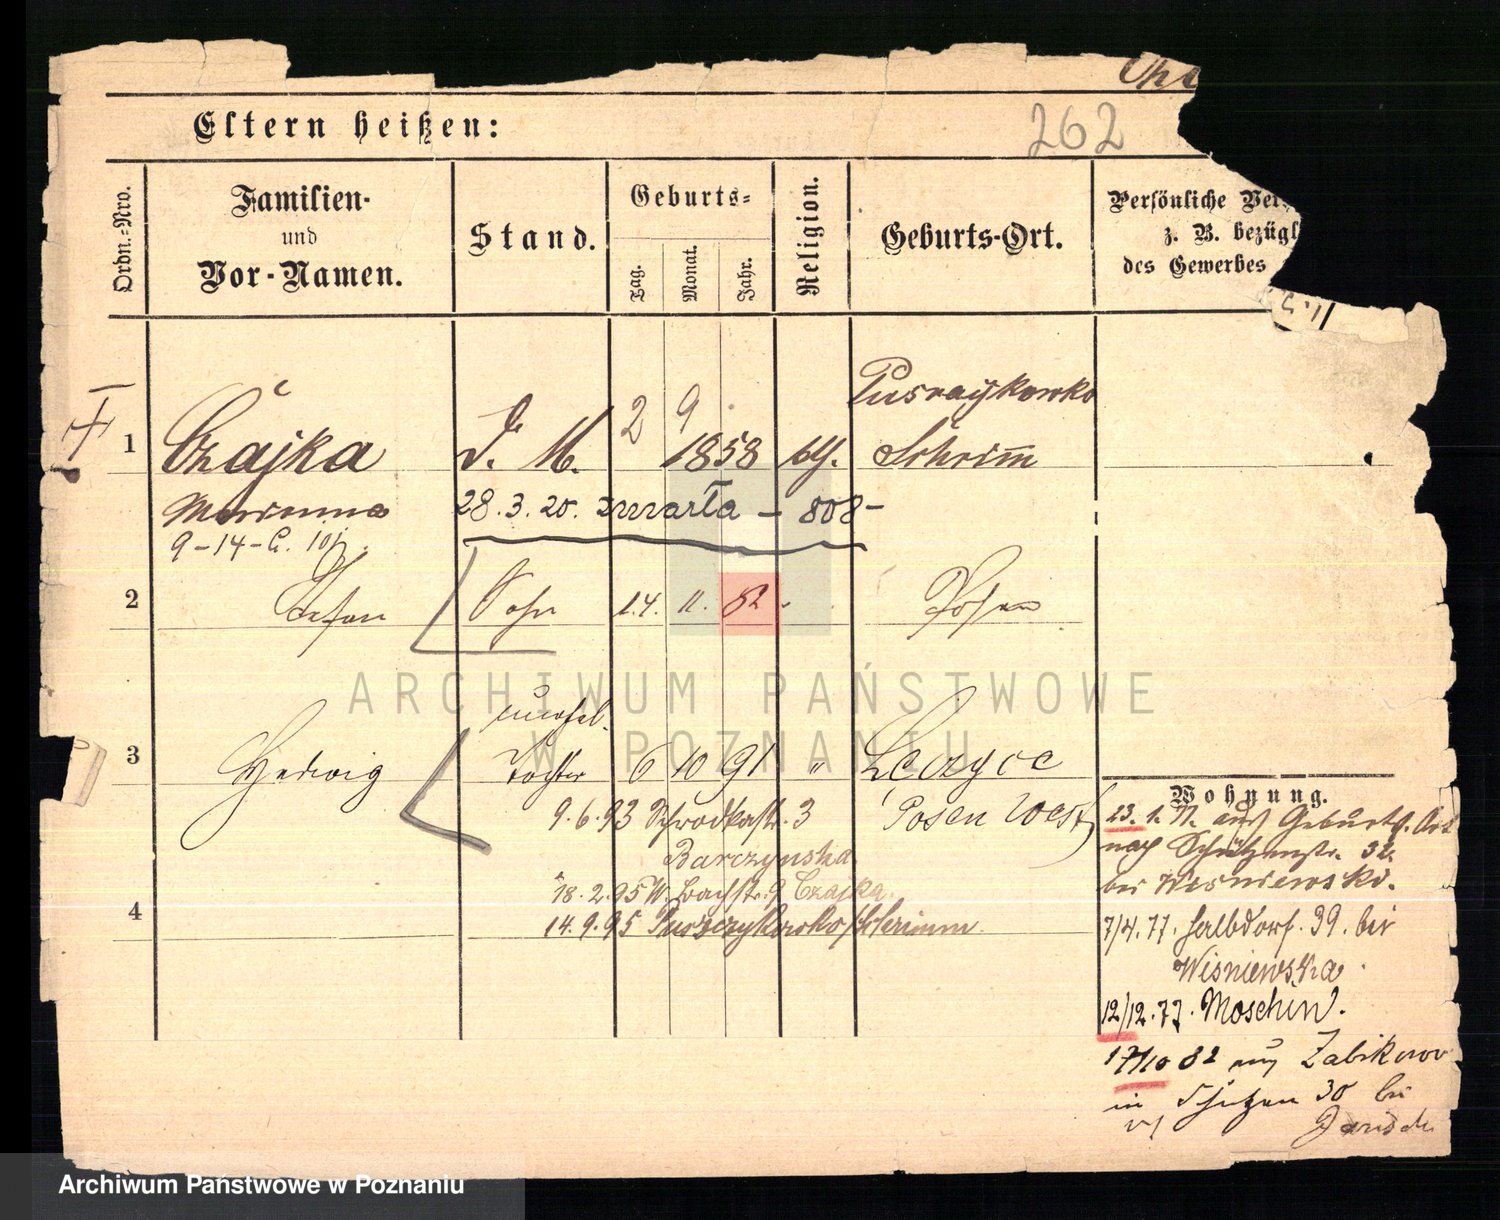 262
Eltern heißen:
Ordn.-Nro.
Familien-
und
Vor-Namen.
Stand.
Geburts-
Tag.
Monat.
Jahr.
Religion.
Geburts-Ort.
Persönliche Ver
z. B. bezügl
des Gewerbes
1
Czajka
D. M.
2 9
1858
Schrimm
Marianna
28.3.20. zmarła - 808 -
9-14-
2
Stefan
Sohn
14. 11. 82
Posen
3
Hedwig
unehel.
Tochter
6 10 91 "
Posen West
9.6.93 Schrodkastr. 3
Barczynska
18.2.95 W. Bachstr. 9 Czajka
4
14.9.95 Puszczykowko/Schrimm
Wohnung.
23. 1. 77. aus Geburts-Ort
nach Schützenstr. 32.
bei Wisniewski.
7/4.77. Halbdorf. 39. bei
Wisniewska.
12/12.77. Moschin.
17/10 82 aus Zabikowo
in Schützen 30 bei
ARCHIWUM PAŃSTWOWE
W POZNANIU
Archiwum Państwowe w Poznaniu